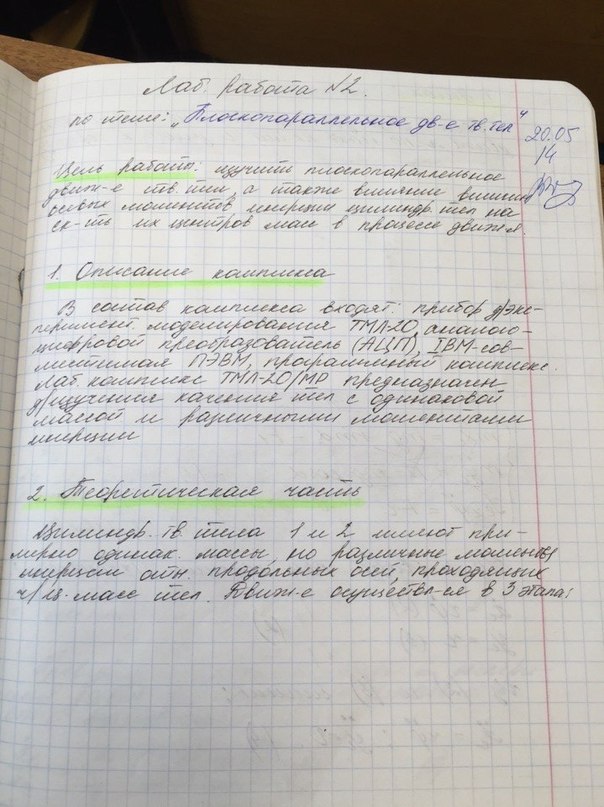 Лаб. работа №2.
по теме: „Плоскопараллельное дв-е тв. тел"
20.05
14
Цель работы: изучить плоскопараллельное
движ-е тв. тел, а также влияние
осевых моментов инерции цилиндр. тел на
ск-ть их центров масс в процессе движ-я.
1. Описание комплекса
В состав комплекса входят: прибор д/экс-
перимент. моделирования ТМЛ-2О, аналого-
цифровой преобразователь (АЦП), IBM-сов-
местимая ПЭВМ, программный комплекс.
Лаб. комплекс ТМЛ-2О/МР предназначен
д/изучения качения тел с одинаковой
массой и различными моментами
инерции
2. Теоретическая часть
Цилиндр. тв. тела 1 и 2 имеют при-
мерно одинак. массы, но различные моменты
инерции отн. продольных осей, проходящих
ч/ц. масс тел. Движ-е осуществл-ся в 3 этапа: